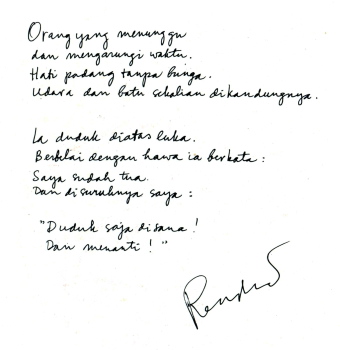 Orang yang menunggu
dan mengarungi waktu.
Hati padang tanpa bunga.
Udara dan batu sekalian dikandungnya.
Ia duduk diatas luka.
Berbelai dengan hawa ia berkata:
Saya sudah tua.
Dan disuruhnya saya:
"Duduk saja disana!
Dan menanti!"
Rendra